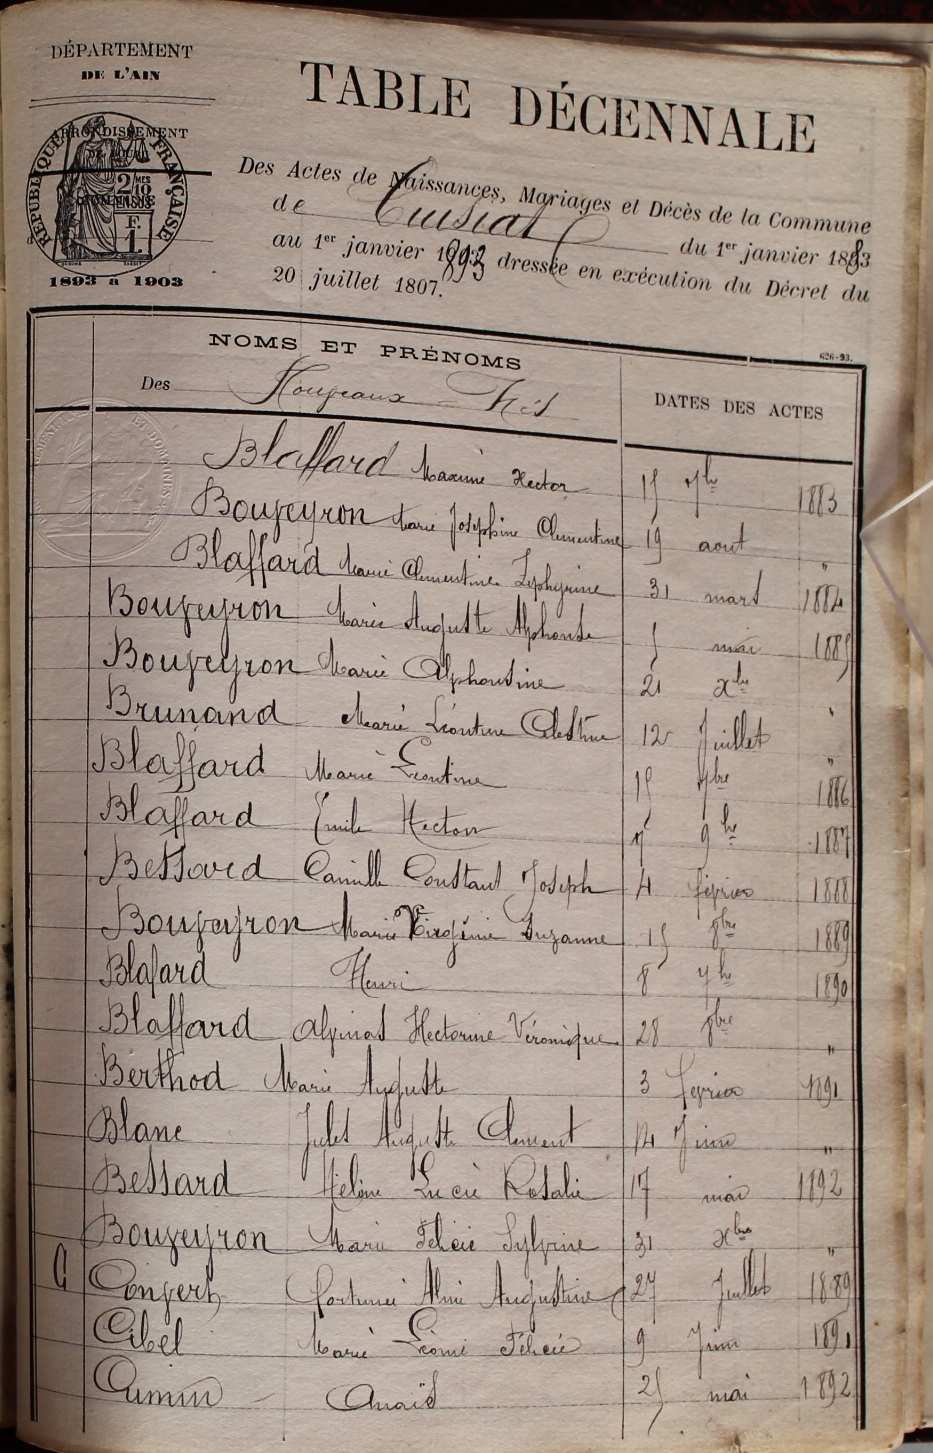 DÉPARTEMENT
DE L'AIN
ARRONDISSEMENT
COMMUNE
RÉPUBLIQUE FRANÇAISE
2/10 MES EN SUS
F. 1.
1893 a 1903
TABLE DÉCENNALE
Des Actes de Naissances, Mariages et Décès de la Commune
de Cuisiat du 1er janvier 1883
au 1er janvier 1893 dressée en exécution du Décret du
20 juillet 1807.
626-93.
NOMS ET PRÉNOMS
DATES DES ACTES
Des Nouveaux Nés
Blaffard Maxime Hector 15 7bre 1883
Bouveyron Marie Joséphine Clementine 19 aout "
Blaffard Marie Clementine Zephyrine 31 mars 1884
Bouveyron Marie Auguste Alphonse 5 mai 1885
Bouveyron Marie Alphonsine 21 Xbre "
Brunand Marie Léontine Celestine 12 Juillet "
Blaffard Marie Léontine 15 7bre 1886
Blaffard Émile Hector 7 9bre 1887
Bessard Camille Constant Joseph 4 février 1888
Bouveyron Marie Virginie Suzanne 15 8bre 1889
Blafard Henri 8 7bre 1890
Blaffard Hectorine Véronique 28 8bre "
Berthod Marie Auguste 3 fevrier 1891
Blanc Jules Auguste Clement 14 Juin "
Bessard Hélène Lucie Rosalie 17 mai 1892
Bouveyron Marie Félicie Sylvine 31 Xbre "
C Convert Fortunée Aline Augustine 27 Juillet 1889
Cibel Marie Léonie Félicie 9 Juin 1891
Cumin Anaïs 25 mai 1892